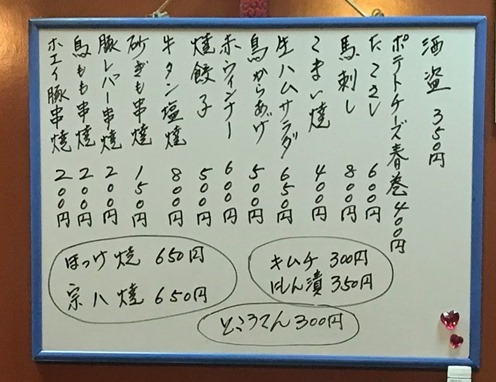 酒盗 350円
ポテトチーズ春巻 400円
たこさし 600円
馬刺し 800円
こまい焼 400円
生ハムサラダ 650円
鳥からあげ 500円
赤ウィンナー 600円
焼餃子 500円
牛タン塩焼 800円
砂ぎも串焼 150円
豚レバー串焼 200円
鳥もも串焼 200円
ホエイ豚串焼 200円
ほっけ焼 650円
宗八焼 650円
キムチ 300円
はしん漬 350円
ところてん 300円